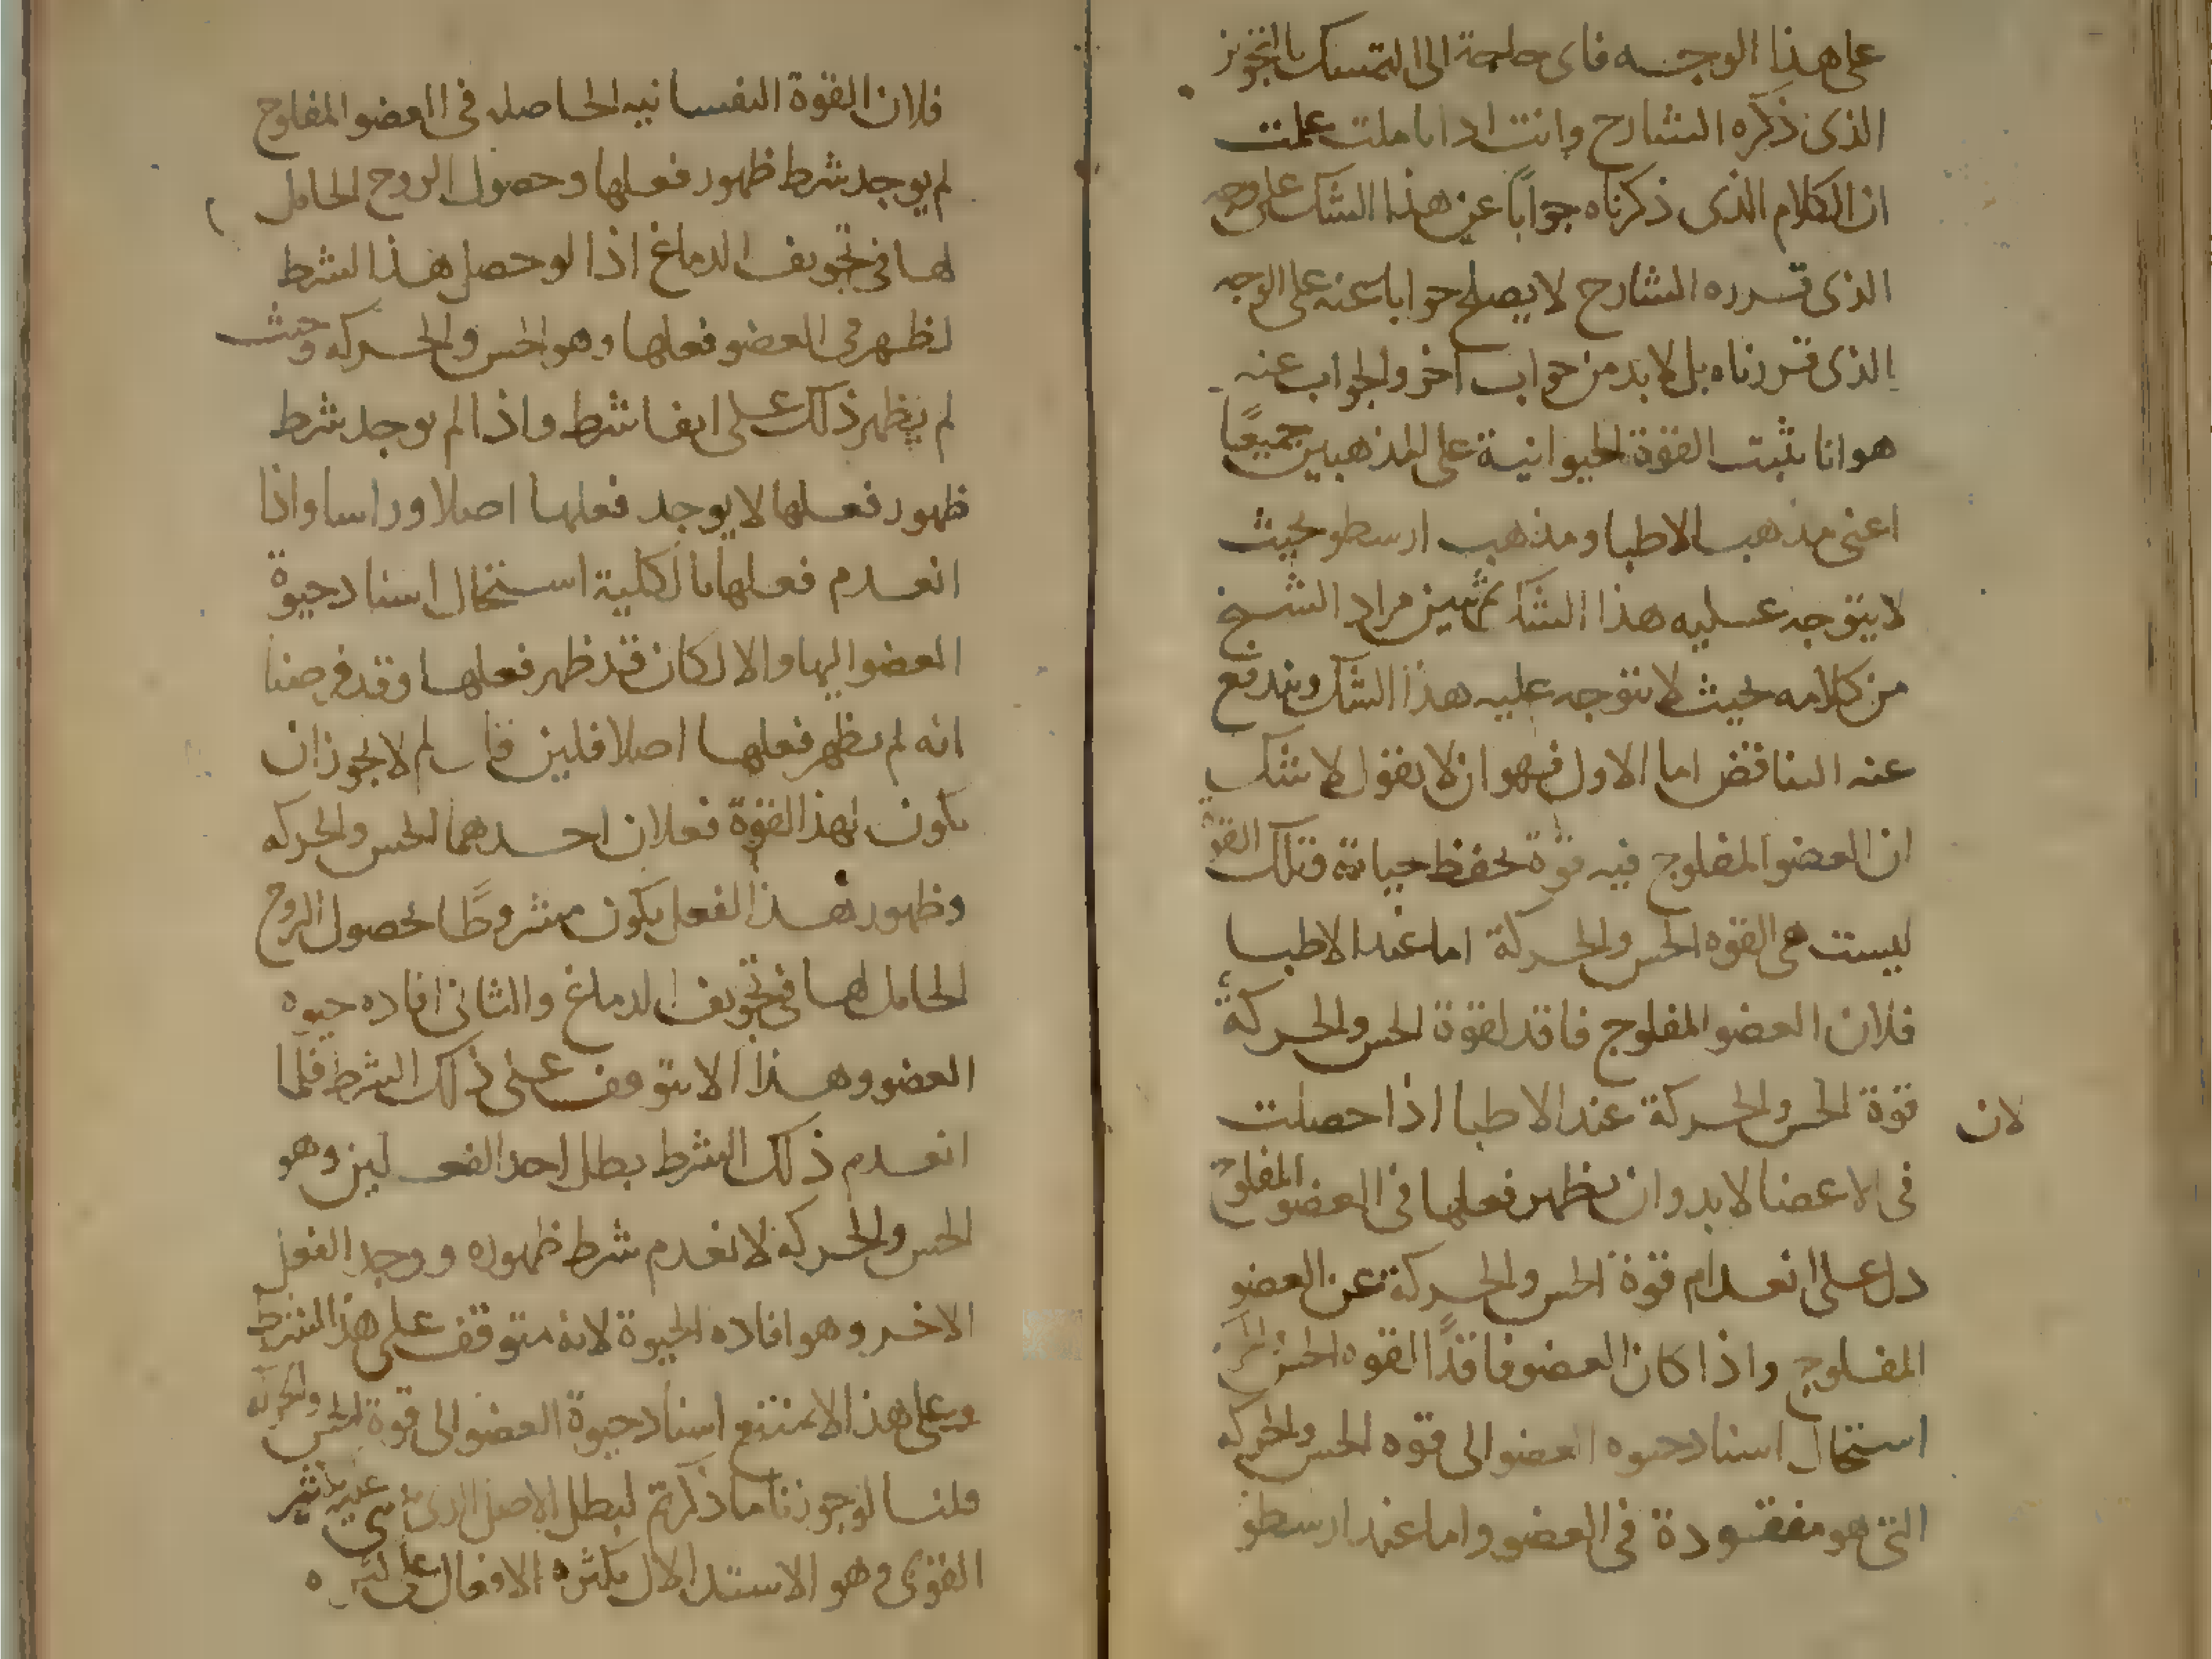 على هذا الوجه فاى حاجة الى التمسك بالتجويز
الذى ذكره الشارح وانت اذا تاملت علمت
ان الكلام الذى ذكرناه جوابًا عن هذا الشك على وجه
الذى قرره الشارح لا يصلح جوابا عنه على الوجه
الذى قررناه بل لا بد من جواب آخر والجواب عنه
هو انا نثبت القوة الحيوانية على المذهبين جميعًا
اعنى مذهب الاطبا ومذهب ارسطو بحيث
لا يتوجه عليه هذا الشك ثم نبين مراد الشيخ
من كلامه بحيث لا يتوجه عليه هذا الشك ويندفع
عنه التناقض اما الاول فهو ان لا نقول لا شك
ان العضو المفلوج فيه قوة تحفظ حياته فتلك القوة
ليست هى القوه الحس والحركة اما عند الاطبا
فلان العضو المفلوج فاقد لقوة الحس والحركة
لان قوة الحس والحركة عند الاطبا اذا حصلت
فى الاعضا لا بد وان يظهر فعلها فى العضو المفلوج
دل على انعدام قوة الحس والحركة عن العضو
المفلوج واذا كان العضو فاقدًا القوه الحس
استحال اسناد حيوه العضو الى قوه الحس والحركه
التى هو مفقودة فى العضو واما عند ارسطو
فلان القوة النفسانيه الحاصله فى العضو المفلوج
لم يوجد شرط ظهور فعلها وحصول الروح الحامل
لها فى تجويف الدماغ اذا لو حصل هذا الشرط
لظهر فى العضو فعلها وهو الحس والحركه وحيث
لم يظهر ذلك على انفا شرط واذا لم يوجد شرط
ظهور فعلها لا يوجد فعلها اصلا وراسا واذا
انعدم فعلها بالكلية استحال اسناد حيوة
العضو اليها والا لكان قد ظهر فعلها وقد فرضنا
انه لم يظهر فعلها اصلا فلين قال لم لا يجوز ان
يكون لهذا القوة فعلان احدهما الحس والحركه
وظهور هذا الفعل يكون مشروطًا بحصول الروح
الحامل لها فى تجويف الدماغ والثانى افاده حيوه
العضو وهذا الا يتوقف على ذلك الشرط فلما
انعدم ذلك الشرط بطل احد الفعلين وهو
الحس والحركه لانعدم شرط ظهوره ووجد الفعل
الاخر وهو افاده الحيوة لانه متوقف على هذا الشرط
وعلى هذا لا يمتنع اسناد حيوة العضو الى قوة الحس والحركه
قلنا لو جوزنا ما ذكرتم لبطل الاصل الذى
القوى وهو الاستدلال بكثره الافعال على